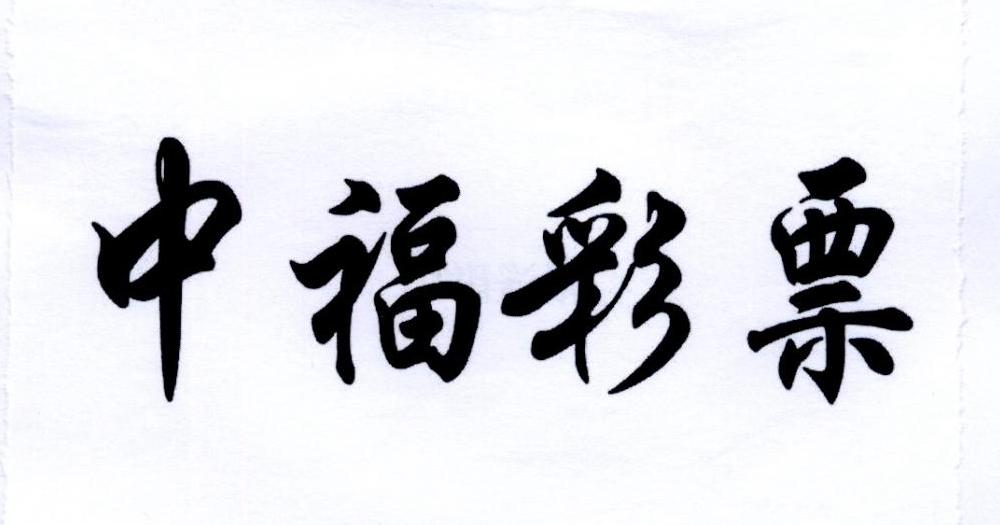 中福彩票